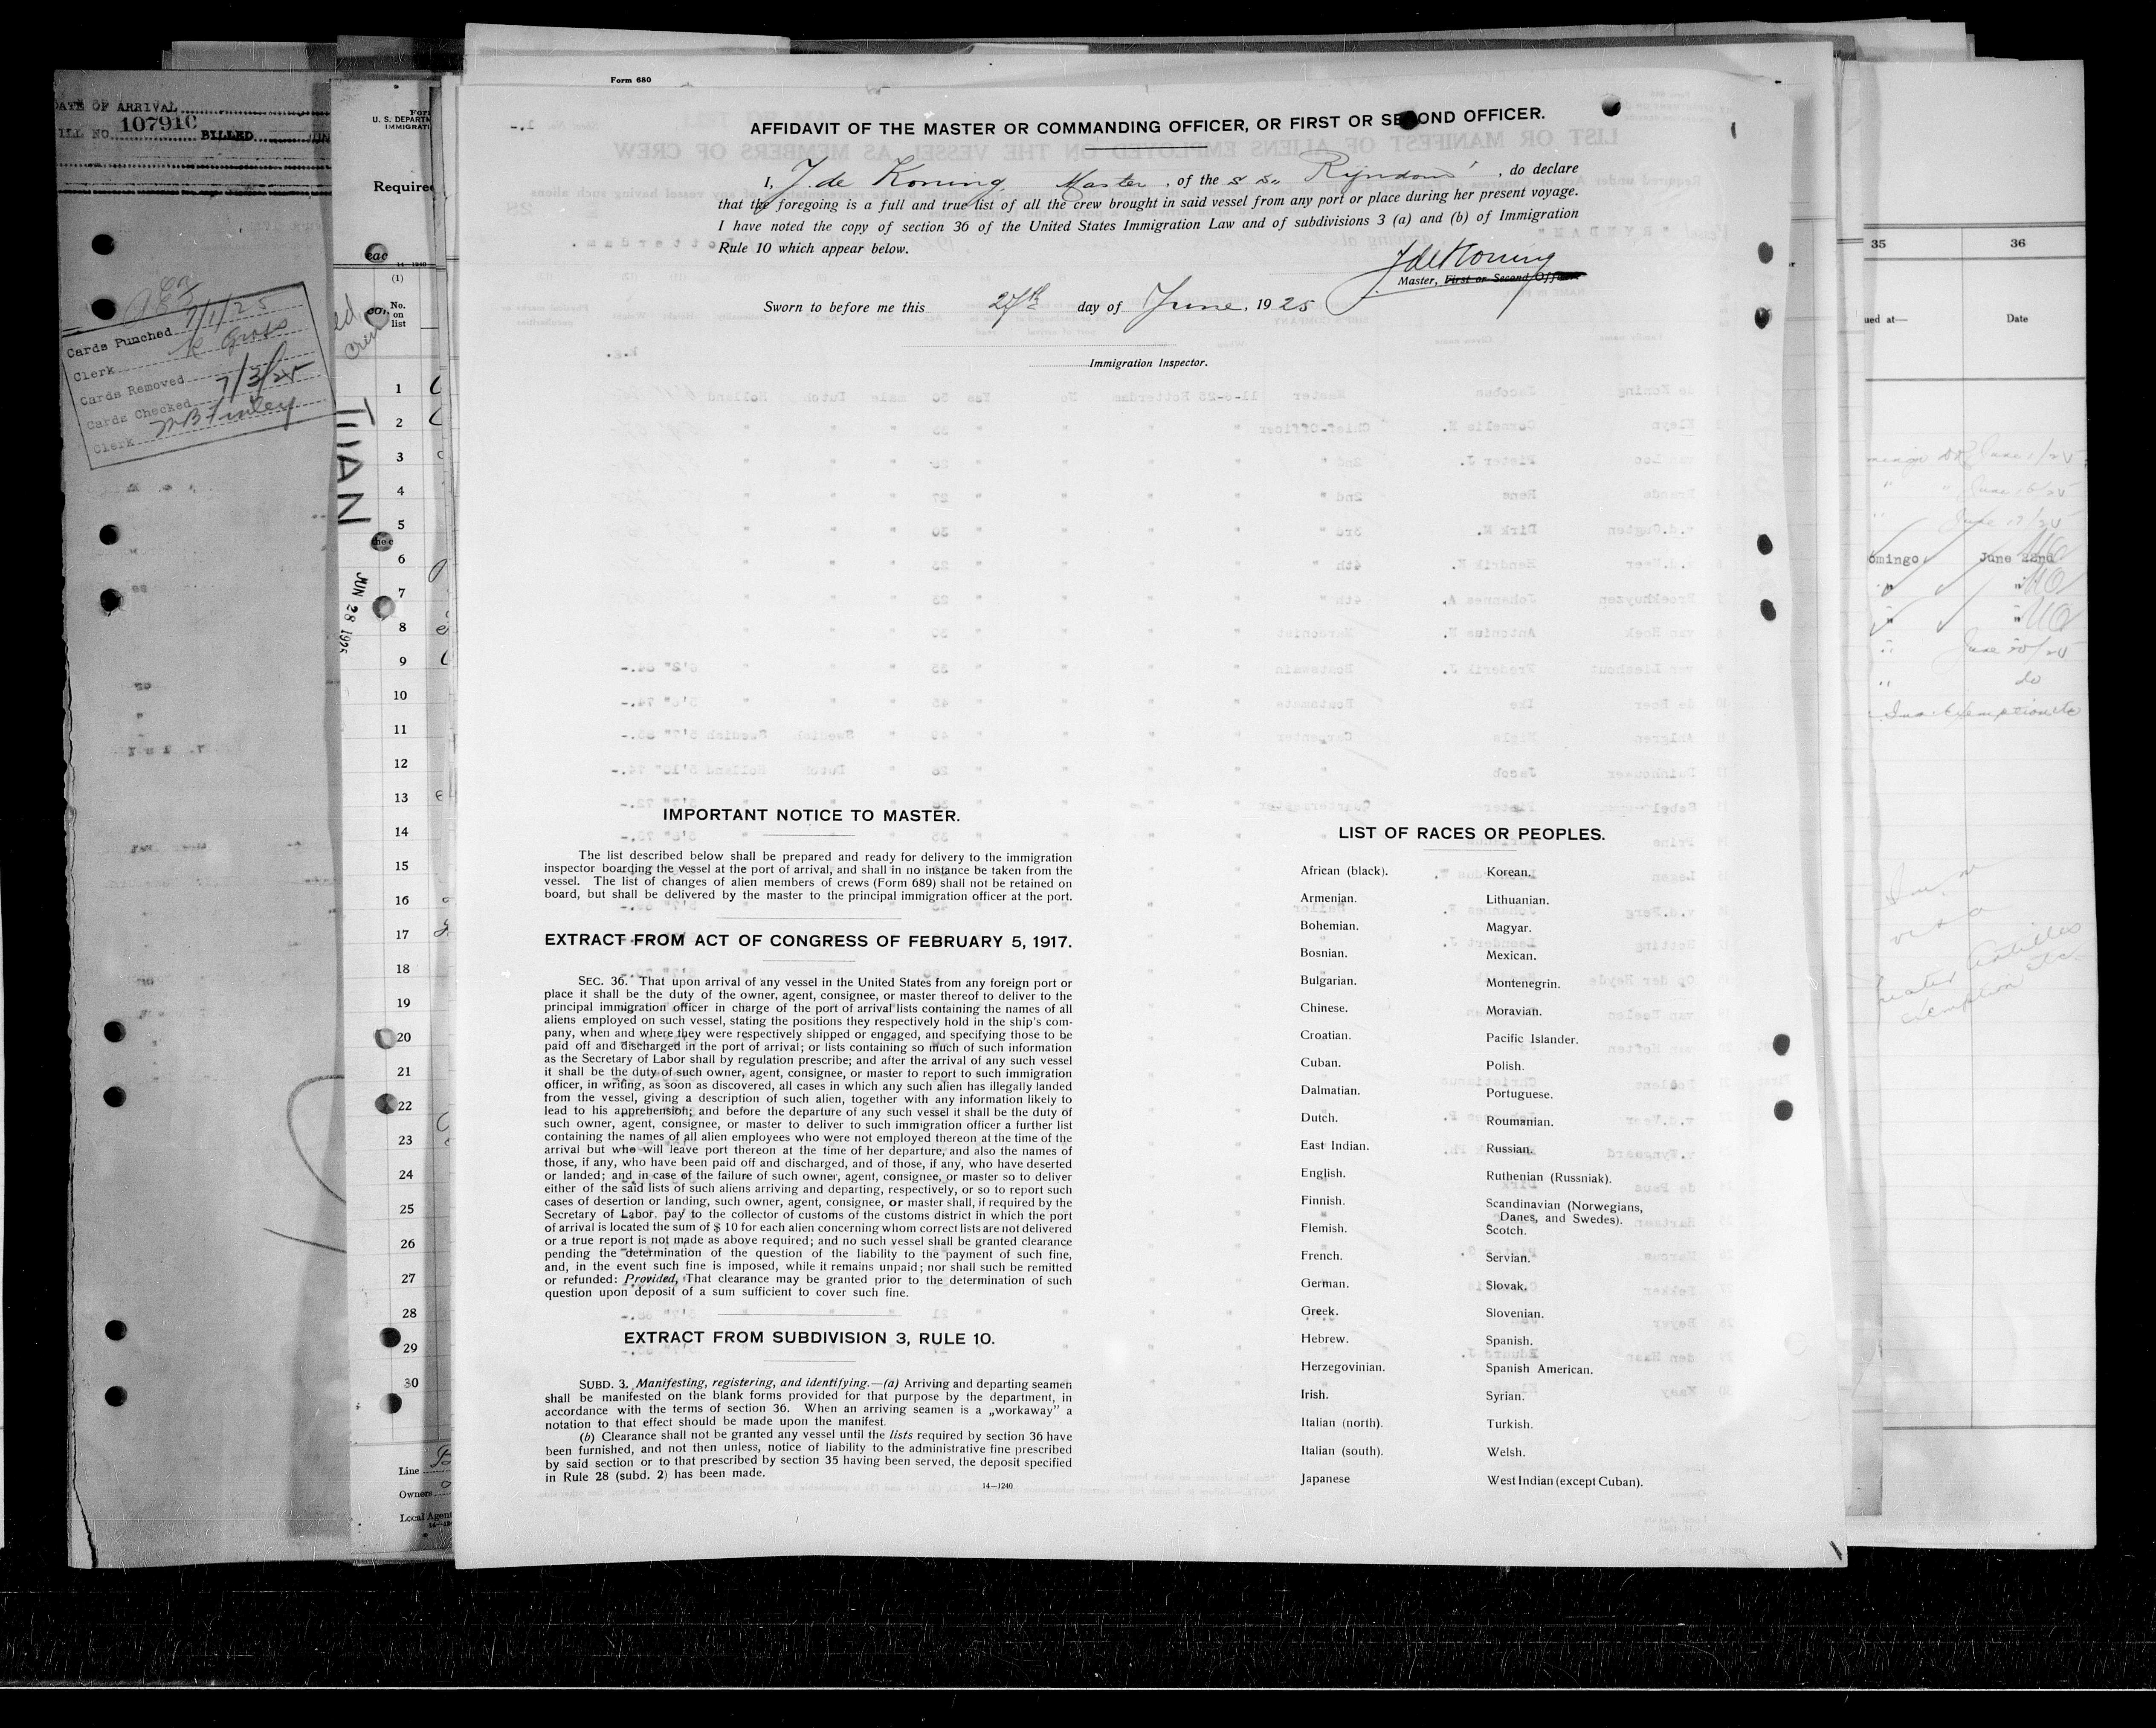 Form 680
AFFIDAVIT OF THE MASTER OR COMMANDING OFFICER, OR FIRST OR SECOND OFFICER.
I, J. de Koning Master, of the S.S. Ryndam, do declare
that the foregoing is a full and true list of all the crew brought in said vessel from any port or place during her present voyage.
I have noted the copy of section 36 of the United States Immigration Law and of subdivisions 3 (a) and (b) of Immigration
Rule 10 which appear below.
J de Koning
Master, First or Second Officer
Sworn to before me this 27th day of June, 1925
Immigration Inspector.
IMPORTANT NOTICE TO MASTER.
The list described below shall be prepared and ready for delivery to the immigration
inspector boarding the vessel at the port of arrival, and shall in no instance be taken from the
vessel. The list of changes of alien members of crews (Form 689) shall not be retained on
board, but shall be delivered by the master to the principal immigration officer at the port.
EXTRACT FROM ACT OF CONGRESS OF FEBRUARY 5, 1917.
SEC. 36. That upon arrival of any vessel in the United States from any foreign port or
place it shall be the duty of the owner, agent, consignee, or master thereof to deliver to the
principal immigration officer in charge of the port of arrival lists containing the names of all
aliens employed on such vessel, stating the positions they respectively hold in the ship's com-
pany, when and where they were respectively shipped or engaged, and specifying those to be
paid off and discharged in the port of arrival; or lists containing so much of such information
as the Secretary of Labor shall by regulation prescribe; and after the arrival of any such vessel
it shall be the duty of such owner, agent, consignee, or master to report to such immigration
officer, in writing, as soon as discovered, all cases in which any such alien has illegally landed
from the vessel, giving a description of such alien, together with any information likely to
lead to his apprehension; and before the departure of any such vessel it shall be the duty of
such owner, agent, consignee, or master to deliver to such immigration officer a further list
containing the names of all alien employees who were not employed thereon at the time of the
arrival but who will leave port thereon at the time of her departure, and also the names of
those, if any, who have been paid off and discharged, and of those, if any, who have deserted
or landed; and in case of the failure of such owner, agent, consignee, or master so to deliver
either of the said lists of such aliens arriving and departing, respectively, or so to report such
cases of desertion or landing, such owner, agent, consignee, or master shall, if required by the
Secretary of Labor, pay to the collector of customs of the customs district in which the port
of arrival is located the sum of $ 10 for each alien concerning whom correct lists are not delivered
or a true report is not made as above required; and no such vessel shall be granted clearance
pending the determination of the question of the liability to the payment of such fine,
and, in the event such fine is imposed, while it remains unpaid; nor shall such be remitted
or refunded: Provided, That clearance may be granted prior to the determination of such
question upon deposit of a sum sufficient to cover such fine.
EXTRACT FROM SUBDIVISION 3, RULE 10.
SUBD. 3. Manifesting, registering, and identifying.—(a) Arriving and departing seamen
shall be manifested on the blank forms provided for that purpose by the department, in
accordance with the terms of section 36. When an arriving seamen is a „workaway" a
notation to that effect should be made upon the manifest.
(b) Clearance shall not be granted any vessel until the lists required by section 36 have
been furnished, and not then unless, notice of liability to the administrative fine prescribed
by said section or to that prescribed by section 35 having been served, the deposit specified
in Rule 28 (subd. 2) has been made.
14—1240
LIST OF RACES OR PEOPLES.
African (black).
Armenian.
Bohemian.
Bosnian.
Bulgarian.
Chinese.
Croatian.
Cuban.
Dalmatian.
Dutch.
East Indian.
English.
Finnish.
Flemish.
French.
German.
Greek.
Hebrew.
Herzegovinian.
Irish.
Italian (north).
Italian (south).
Japanese
Korean.
Lithuanian.
Magyar.
Mexican.
Montenegrin.
Moravian.
Pacific Islander.
Polish.
Portuguese.
Roumanian.
Russian.
Ruthenian (Russniak).
Scandinavian (Norwegians,
Danes, and Swedes).
Scotch.
Servian.
Slovak.
Slovenian.
Spanish.
Spanish American.
Syrian.
Turkish.
Welsh.
West Indian (except Cuban).
DATE OF ARRIVAL
BILL NO. 107910 BILLED JUN
Cards Punched 7/1/25
Clerk K Gross
Cards Removed
Cards Checked 7/3/25
Clerk MB Finley
U. S. DEPARTM
IMMIGRATI
Required
14—1240
(1)
No.
on
list
JUN 28 1925
1
2
3
4
5
6
7
8
9
10
11
12
13
14
15
16
17
18
19
20
21
22
23
24
25
26
27
28
29
30
Line
Owners
Local Agent
35
36
ued at—
Date
June 1/25
omingo
June 22nd
do